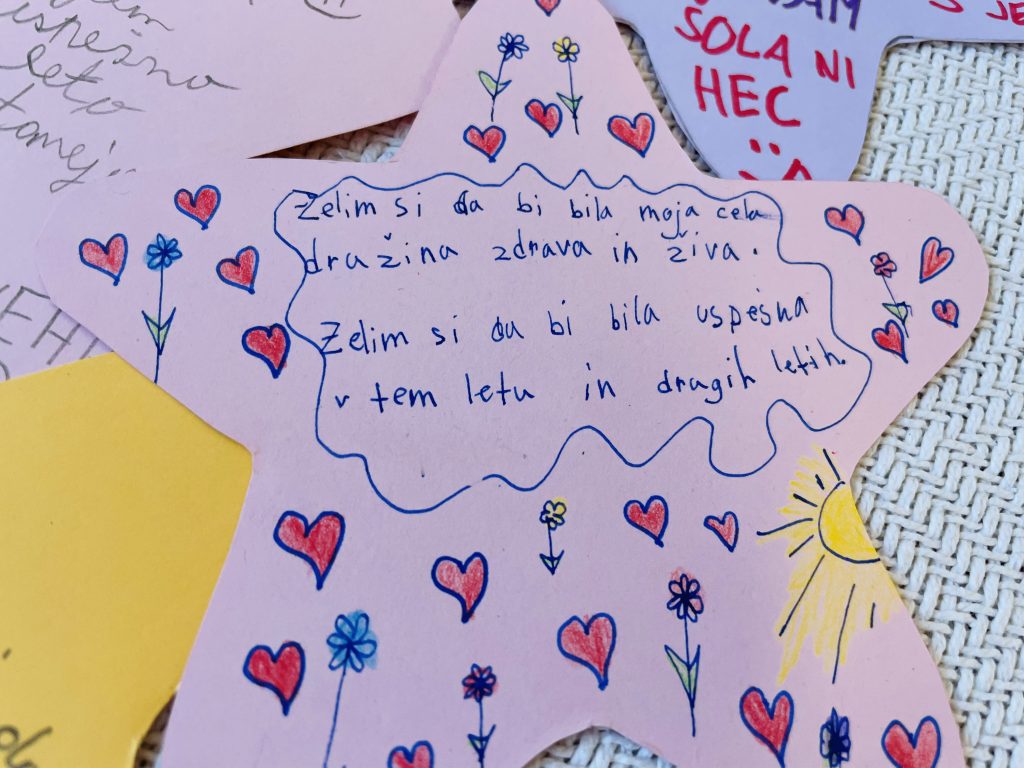 uspešno
leto
ŠOLA NI
HEC
Želim si da bi bila moja cela
družina zdrava in živa.
Želim si da bi bila uspešna
v tem letu in drugih letih.